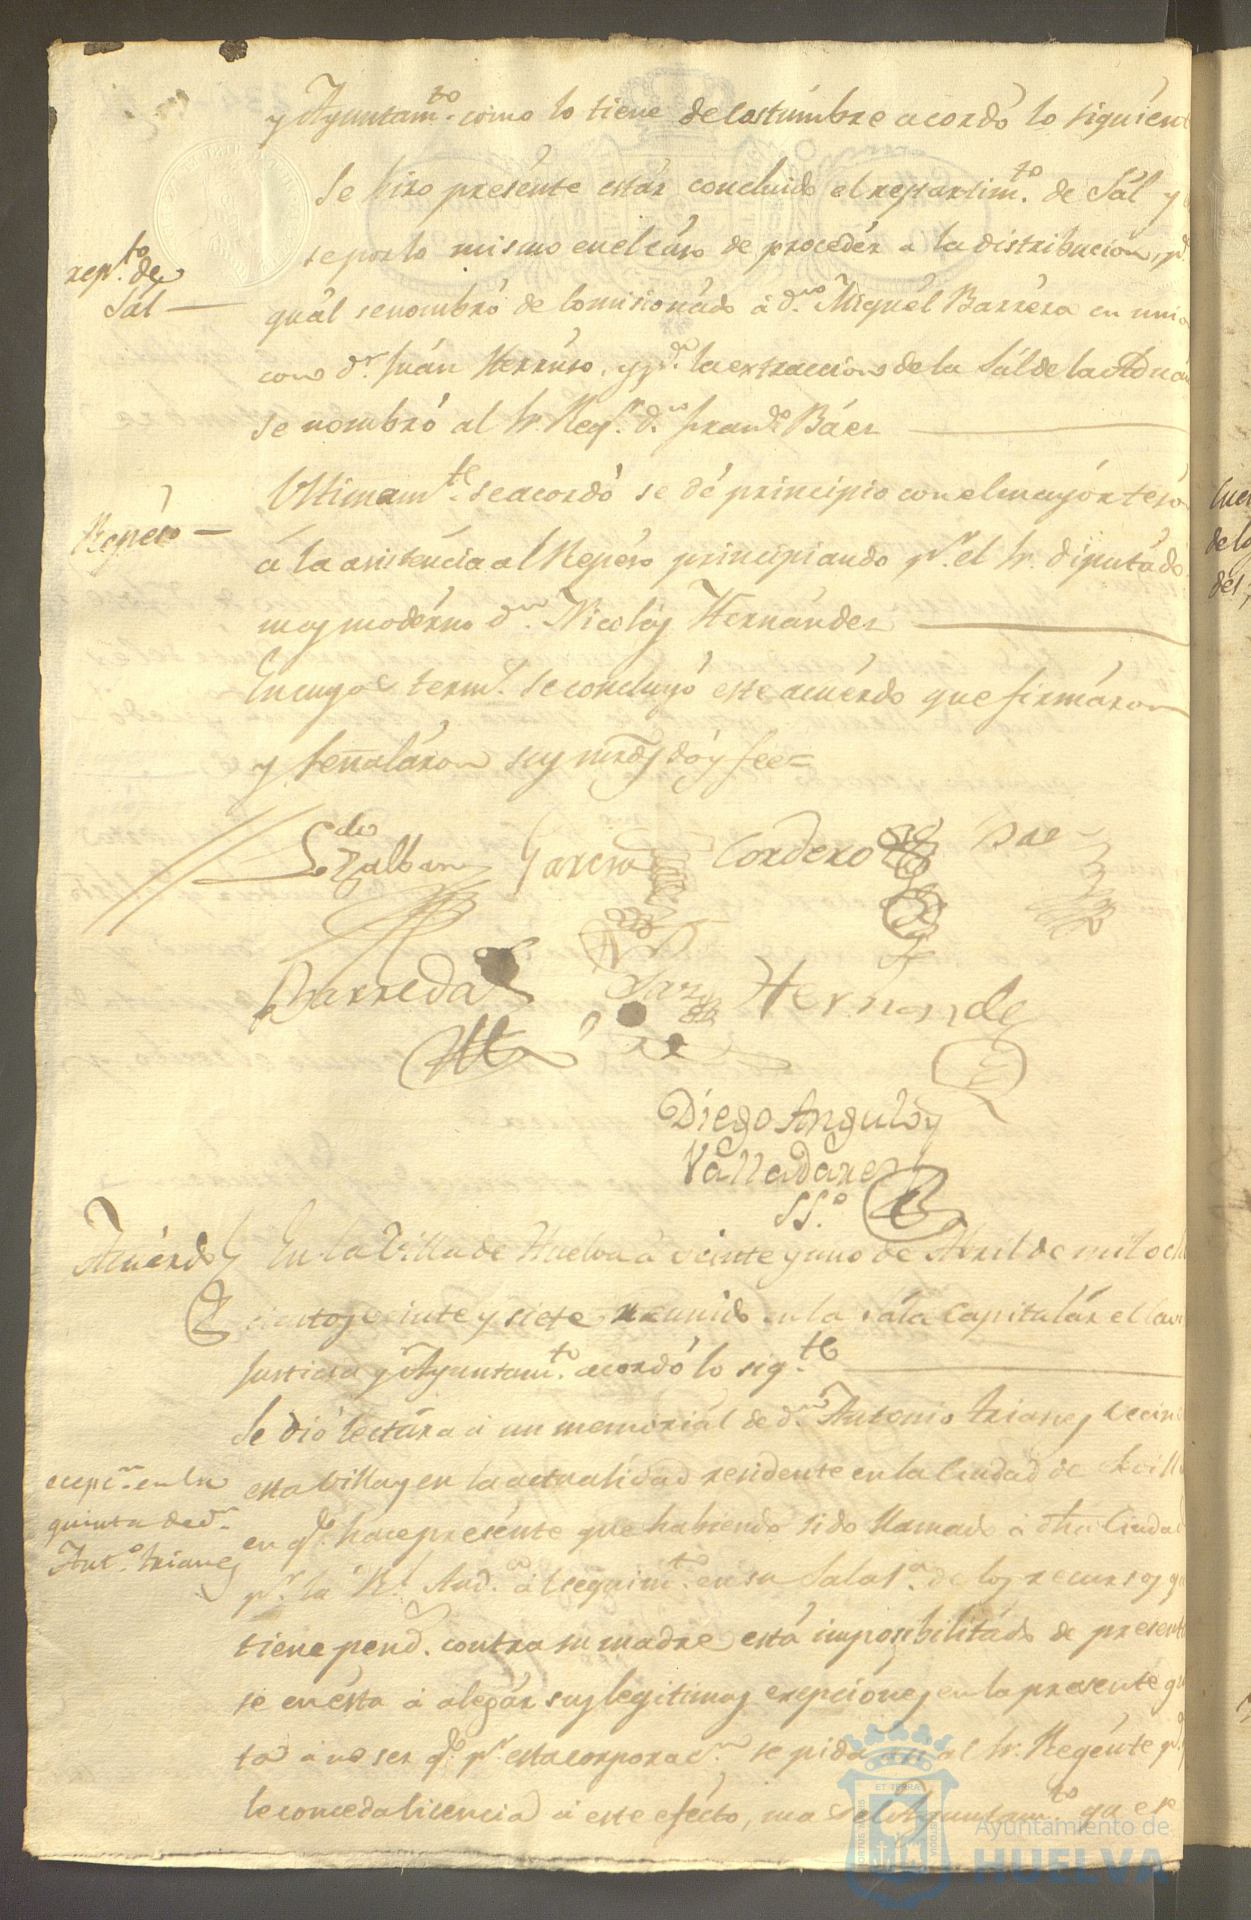 y Ayuntam.to como lo tiene de costúmbre acordó lo siguien
Se hizo presénte estár concluido el repartim.to de Sál y
se por lo mismo en el cáso de procedér a la distribucion, p.a
repar.to de
Sál
quál se nombró de Comisionádo á d.n Miguél Barréra en unió
con d.n Juán Herréro, y p.a la extraccion de la Sál de la Aduán
se nombró al Sr. Reg.r d.n Fran.co Báez
Ultimam.te se acordó se dé princípio con el mayór tesón
Repéso
á la asisténcia al Repéso principiando p.r el Sr. Diputádo
mas modérno d.n Nicolás Hernández
En cuyos term.s se concluyó este acuérdo que firmáron
y señaláron sus mrds dóy fee=
Garcia Cordero Bae
Barreda Hernandez
Diego Angulo y
Valladares
SS.o
Acuérdo En la Villa de Huelva á veinte y uno de Abril de mil och
cientos veinte y siete reunido en la sála Capitulár el
Justicia y Ayuntam.to acordó lo sig.te
Se dió lectúra á un memoriál de d.n Antonio trianes vecin
ecepc.n en la
quinta de d.n
Ant.o trianes
esta Villa y en la actualidad residente en la Ciudad de Sevilla
en q.e hace presénte que habiendo sido llamado á dha Ciudad
p.r la R.l Aud.a al seguim.to en su Sala 1.a de los recursos q
tiene pend.s contra su madre está imposibilitádo de present
se en ésta á alegár sus legitimas excepciónes en la presente qu
ta á no ser q.e p.r esta corporac.n se pida al Sr. Regénte p.a
le conceda licencia á este efécto, mas el Ayuntam.to
Ayuntamiento de
HUELVA